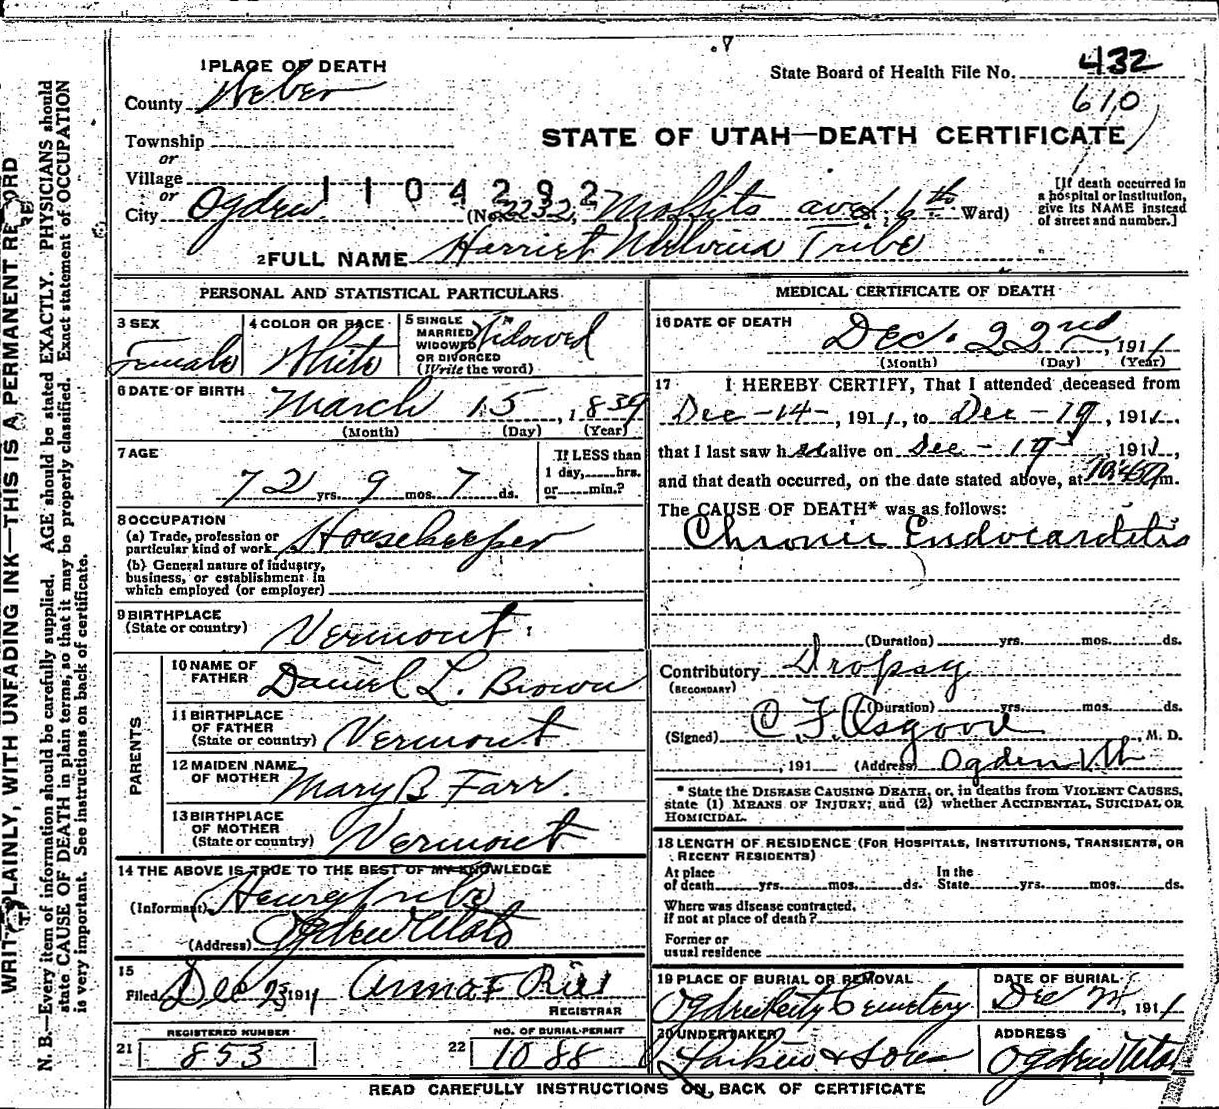 1 PLACE OF DEATH
County Weber
State Board of Health File No. 432
610
STATE OF UTAH—DEATH CERTIFICATE
Township
or
Village
or
1104292
City Ogden (No. 2232, Moffits ave St; 6th Ward)
[If death occurred in a hospital or institution, give its NAME instead of street and number.]
2 FULL NAME Harriet Melvina Tribe
PERSONAL AND STATISTICAL PARTICULARS
3 SEX
Female
4 COLOR OR RACE
White
5 SINGLE MARRIED WIDOWED OR DIVORCED (Write the word)
Widowed
6 DATE OF BIRTH
March 15, 1839
(Month) (Day) (Year)
7 AGE
72 yrs. 9 mos. 7 ds.
If LESS than 1 day, hrs. or min.?
8 OCCUPATION
(a) Trade, profession or particular kind of work Housekeeper
(b) General nature of industry, business, or establishment in which employed (or employer)
9 BIRTHPLACE
(State or country) Vermont
PARENTS
10 NAME OF FATHER Daniel L. Brown
11 BIRTHPLACE OF FATHER (State or country) Vermont
12 MAIDEN NAME OF MOTHER Mary B Farr.
13 BIRTHPLACE OF MOTHER (State or country) Vermont
14 THE ABOVE IS TRUE TO THE BEST OF MY KNOWLEDGE
(Informant) Henry Tribe
(Address) Ogden Utah
15
Filed Dec 23 1911 Anna F Ries
REGISTRAR
REGISTERED NUMBER
21 853
NO. OF BURIAL PERMIT
22 1088
MEDICAL CERTIFICATE OF DEATH
16 DATE OF DEATH
Dec. 22nd, 1911
(Month) (Day) (Year)
17 I HEREBY CERTIFY, That I attended deceased from
Dec-14-, 1911, to Dec-19, 1911,
that I last saw her alive on Dec-19, 1911,
and that death occurred, on the date stated above, at m.
The CAUSE OF DEATH* was as follows:
Chronic Endocarditis
(Duration) yrs. mos. ds.
Contributory Dropsy
(SECONDARY)
(Duration) yrs. mos. ds.
(Signed) C. F. Osgood, M. D.
, 191 (Address) Ogden Uth
* State the DISEASE CAUSING DEATH, or, in deaths from VIOLENT CAUSES, state (1) MEANS OF INJURY; and (2) whether ACCIDENTAL, SUICIDAL OR HOMICIDAL.
18 LENGTH OF RESIDENCE (FOR HOSPITALS, INSTITUTIONS, TRANSIENTS, OR RECENT RESIDENTS)
At place of death yrs. mos. ds. In the State yrs. mos. ds.
Where was disease contracted, if not at place of death?
Former or usual residence
19 PLACE OF BURIAL OR REMOVAL
Ogden City Cemetery
DATE OF BURIAL
Dec, 1911
20 UNDERTAKER
Larkin & Sons
ADDRESS
Ogden Utah
READ CAREFULLY INSTRUCTIONS ON BACK OF CERTIFICATE
WRITE PLAINLY, WITH UNFADING INK—THIS IS A PERMANENT RECORD
N. B.—Every item of information should be carefully supplied. AGE should be stated EXACTLY. PHYSICIANS should
state CAUSE OF DEATH in plain terms, so that it may be properly classified. Exact statement of OCCUPATION
is very important. See instructions on back of certificate.